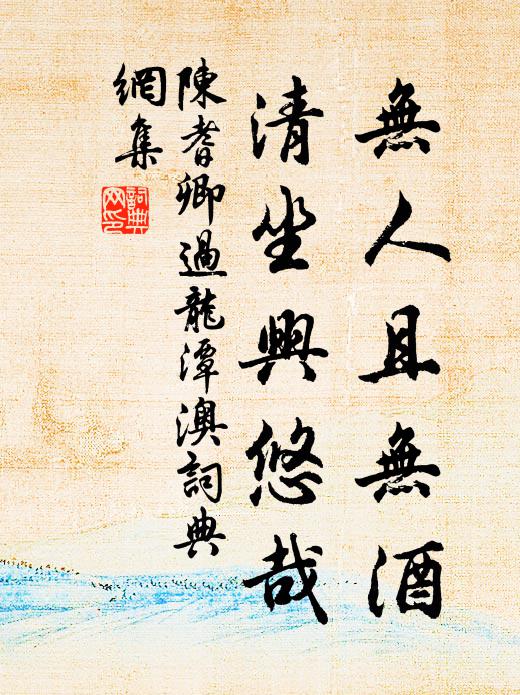 無人且無酒
清坐興悠哉
陳耆卿過龍潭澳詞典
網集
詞典
网印